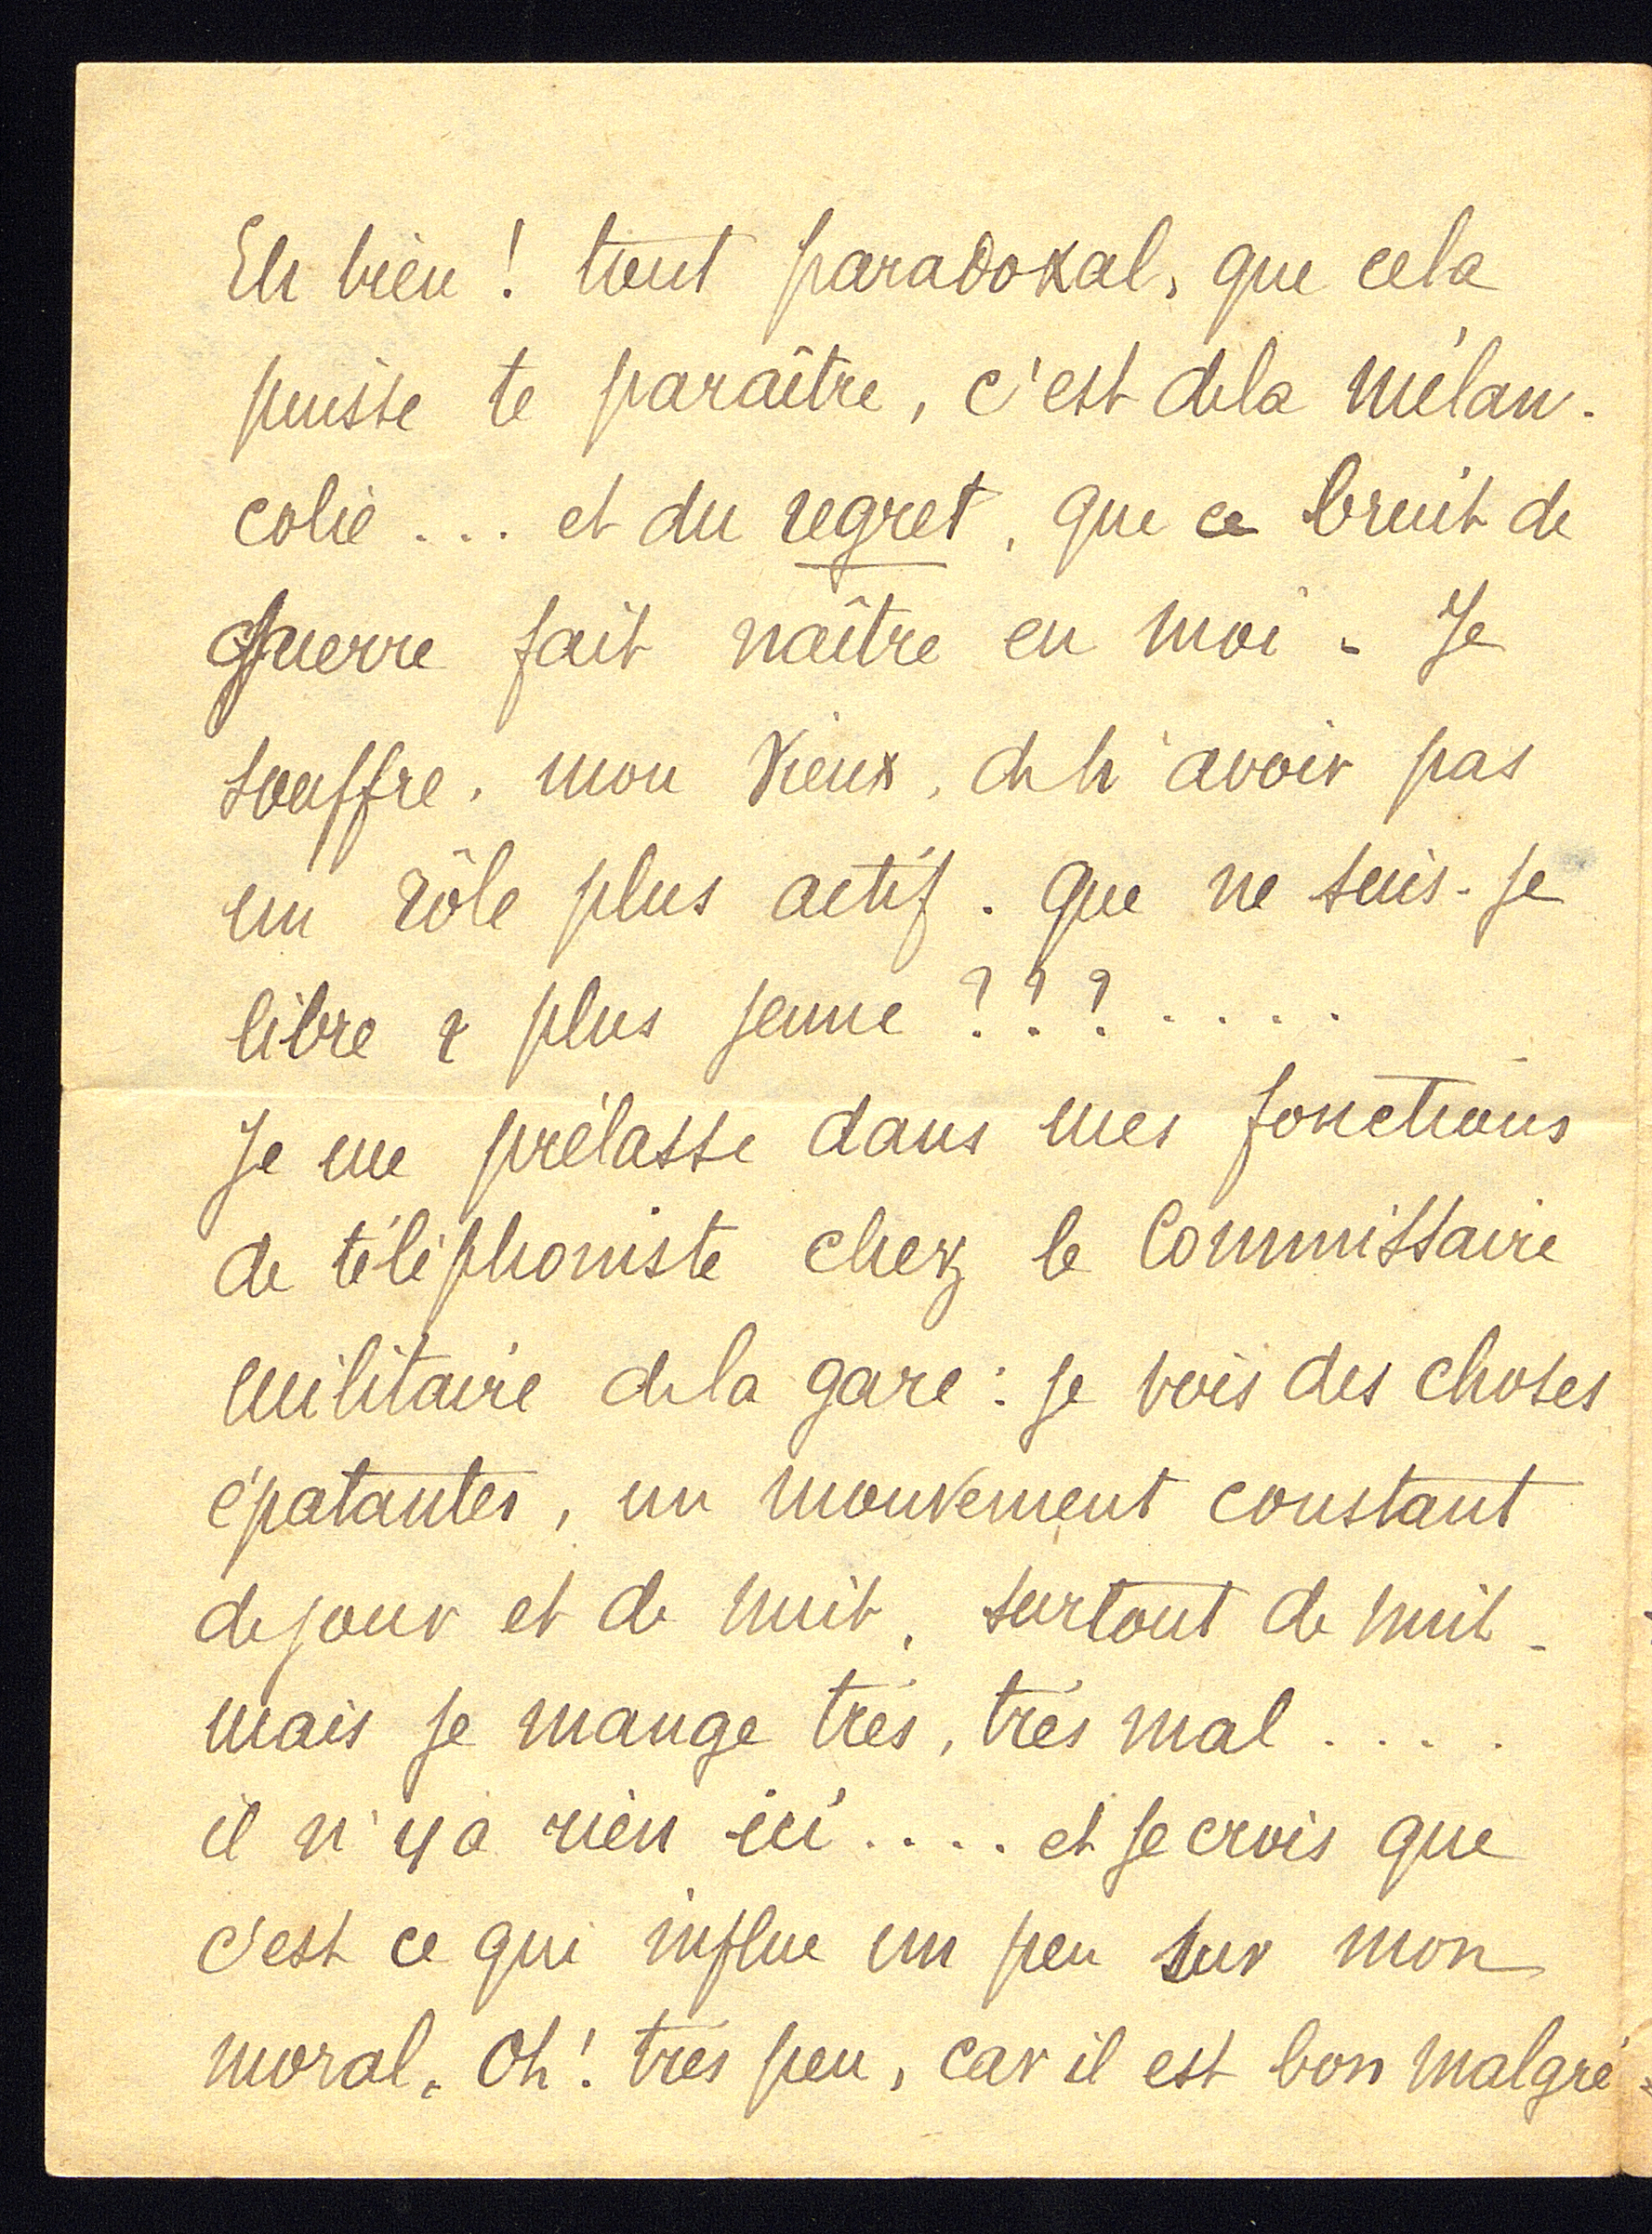 Eh bien ! tout paradoxal, que cela
puisse te paraître, c'est de la mélan-
colie ... et du regret, que ce bruit de
guerre fait naître en moi. Je
souffre, mon Vieux, de n'avoir pas
un rôle plus actif. Que ne suis-je
libre & plus jeune ??? ....
Je me prélasse dans mes fonctions
de téléphoniste chez le Commissaire
militaire de la gare : je vois des choses
épatantes, un mouvement constant
de jour et de nuit, surtout de nuit -
mais je mange très, très mal ....
il n'y a rien ici .... et je crois que
c'est ce qui influe un peu sur mon
moral. Oh ! très peu, car il est bon malgré